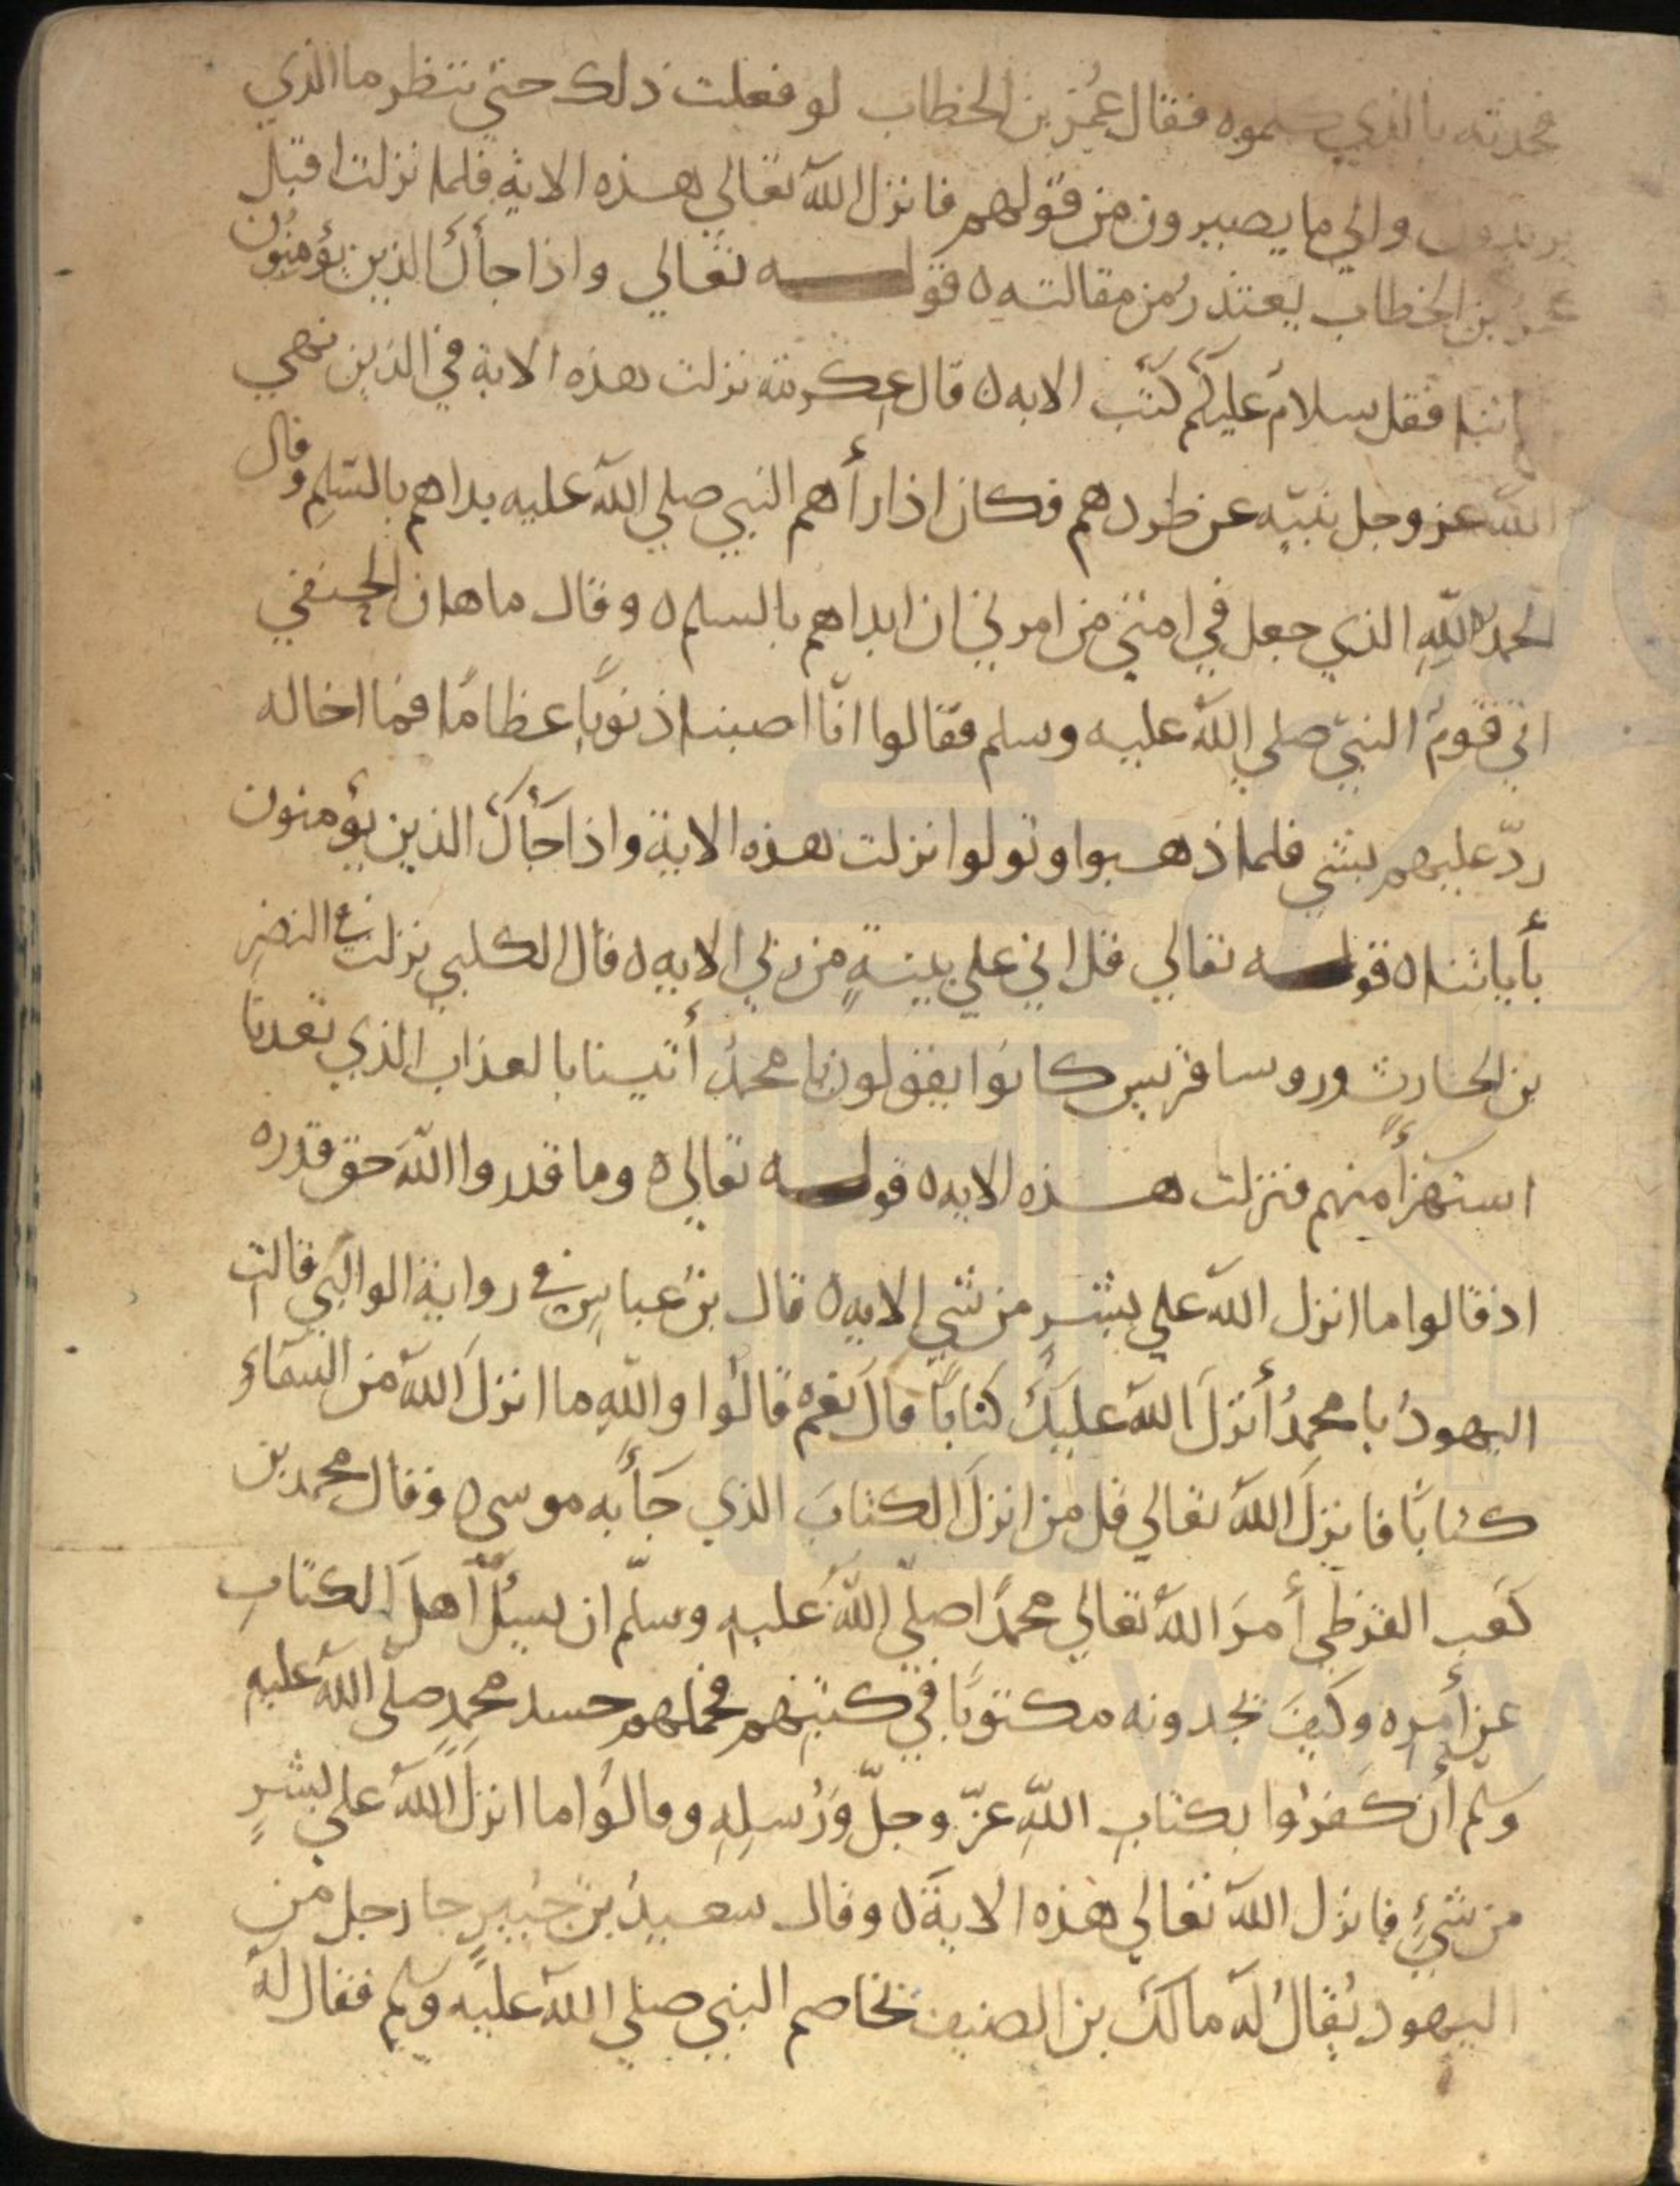 فحدثه بالذي كلموه فقال عُمر بن الخطاب لو فعلت ذلك حتي ننظر ما الذي
يريدون والي ما يصيرون من قولهم فانزل الله تعالي هذه الاية فلما نزلت اقبل
عمر بن الخطاب يعتذر من مقالته ه قوله تعالي واذا جأك الذين يؤمنون
باياتنا فقل سلام عليكم كتب الايه ه قال عكرمة نزلت هذه الاية في الذين نهي
الله عز وجل نبيه عن طردهم فكان اذا رأهم النبي صلي الله عليه بداهم بالسّلم وقال
الحمد لله الذي جعل في امتي من امرني ان ابداهم بالسلم ه وقال ماهان الحنفي
اتي قوم النبيّ صلي الله عليه وسلم فقالوا انّا اصبنا ذنوبًا عظامًا فما اخاله
ردّ عليهم بشي فلما ذهبوا وتولوا نزلت هذه الاية واذا جأك الذين يؤمنون
بأياتنا ه قوله تعالي قل اني علي بينةٍ من ربي الايه ه قال الكلبي نزلت في النضر
بن الحارث وروسا قريس كانوا يقولون يا محمدُ أتينا بالعذاب الذي تعدنا
استهزأً منهم فنزلت هذه الايه ه قوله تعالي ه وما قدروا الله حق قدره
اذ قالوا ما انزل الله علي بشرٍ من شي الايه ه قال بن عباسٍ في رواية الوالبي قالت
اليهودُ يا محمدُ أنزلَ الله عليكَ كتابًا قال نعم قالوا والله ما انزلَ الله من السماءِ
كتابًا فانزلَ الله تعالي قل من انزلَ الكتابَ الذي جَأَ به موسي ه وقال محمد بن
كعب القرظي أمرَ الله تعالي محمدًا صلّي الله عليه وسلّم ان يسئلَ اهلَ الكتابِ
عن أمره وكيفَ يجدونه مكتوبًا في كتبهم فحملهم حسد محمدٍ صلّي الله عليه
وسلم أن كفروا بكتابِ اللّهِ عزّ وجلّ وَرُسلِهِ وقالوا ما انزلَ الله علي بشرٍ
من شيءٍ فانزل الله تعالي هذه الاية ه وقال سعيدُ بن جُبيرٍ جا رجل من
اليهود يُقالُ له مالك بن الصيف يخاصم النبي صلي الله عليه وسلم فقال له